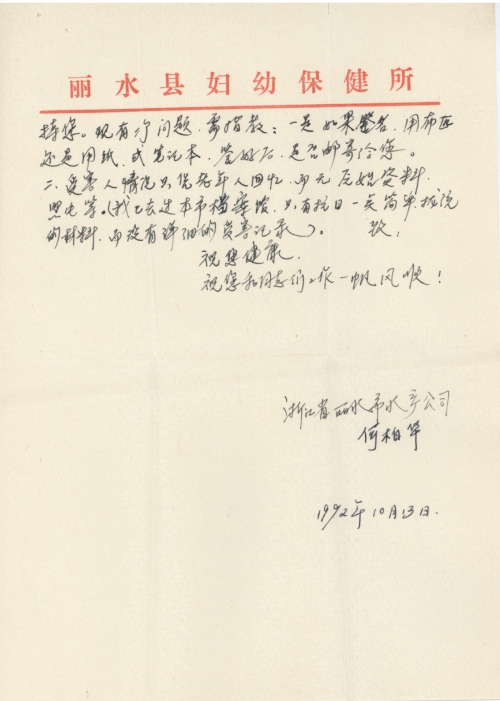 丽水县妇幼保健所
持您。现有个问题，需指教：一是如果签名，用布匹
还是用纸，或笔记本，签好后，是否邮寄给您。
二、受害人情况只凭老年人回忆，而无原始资料，
照片等。（我已去过本市档案馆，只有抗日一类简单概况
的材料，而没有详细的受害记录）。 致：
祝您健康，
祝您和同志们工作一帆风顺！
浙江省丽水市水产公司
何柏华
1992年10月13日.